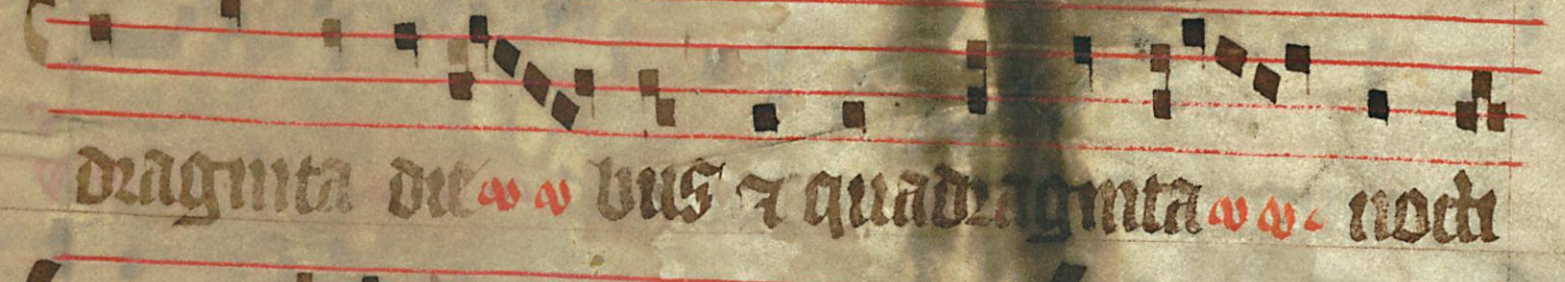 draginta die bus ⁊ quadraginta nocti